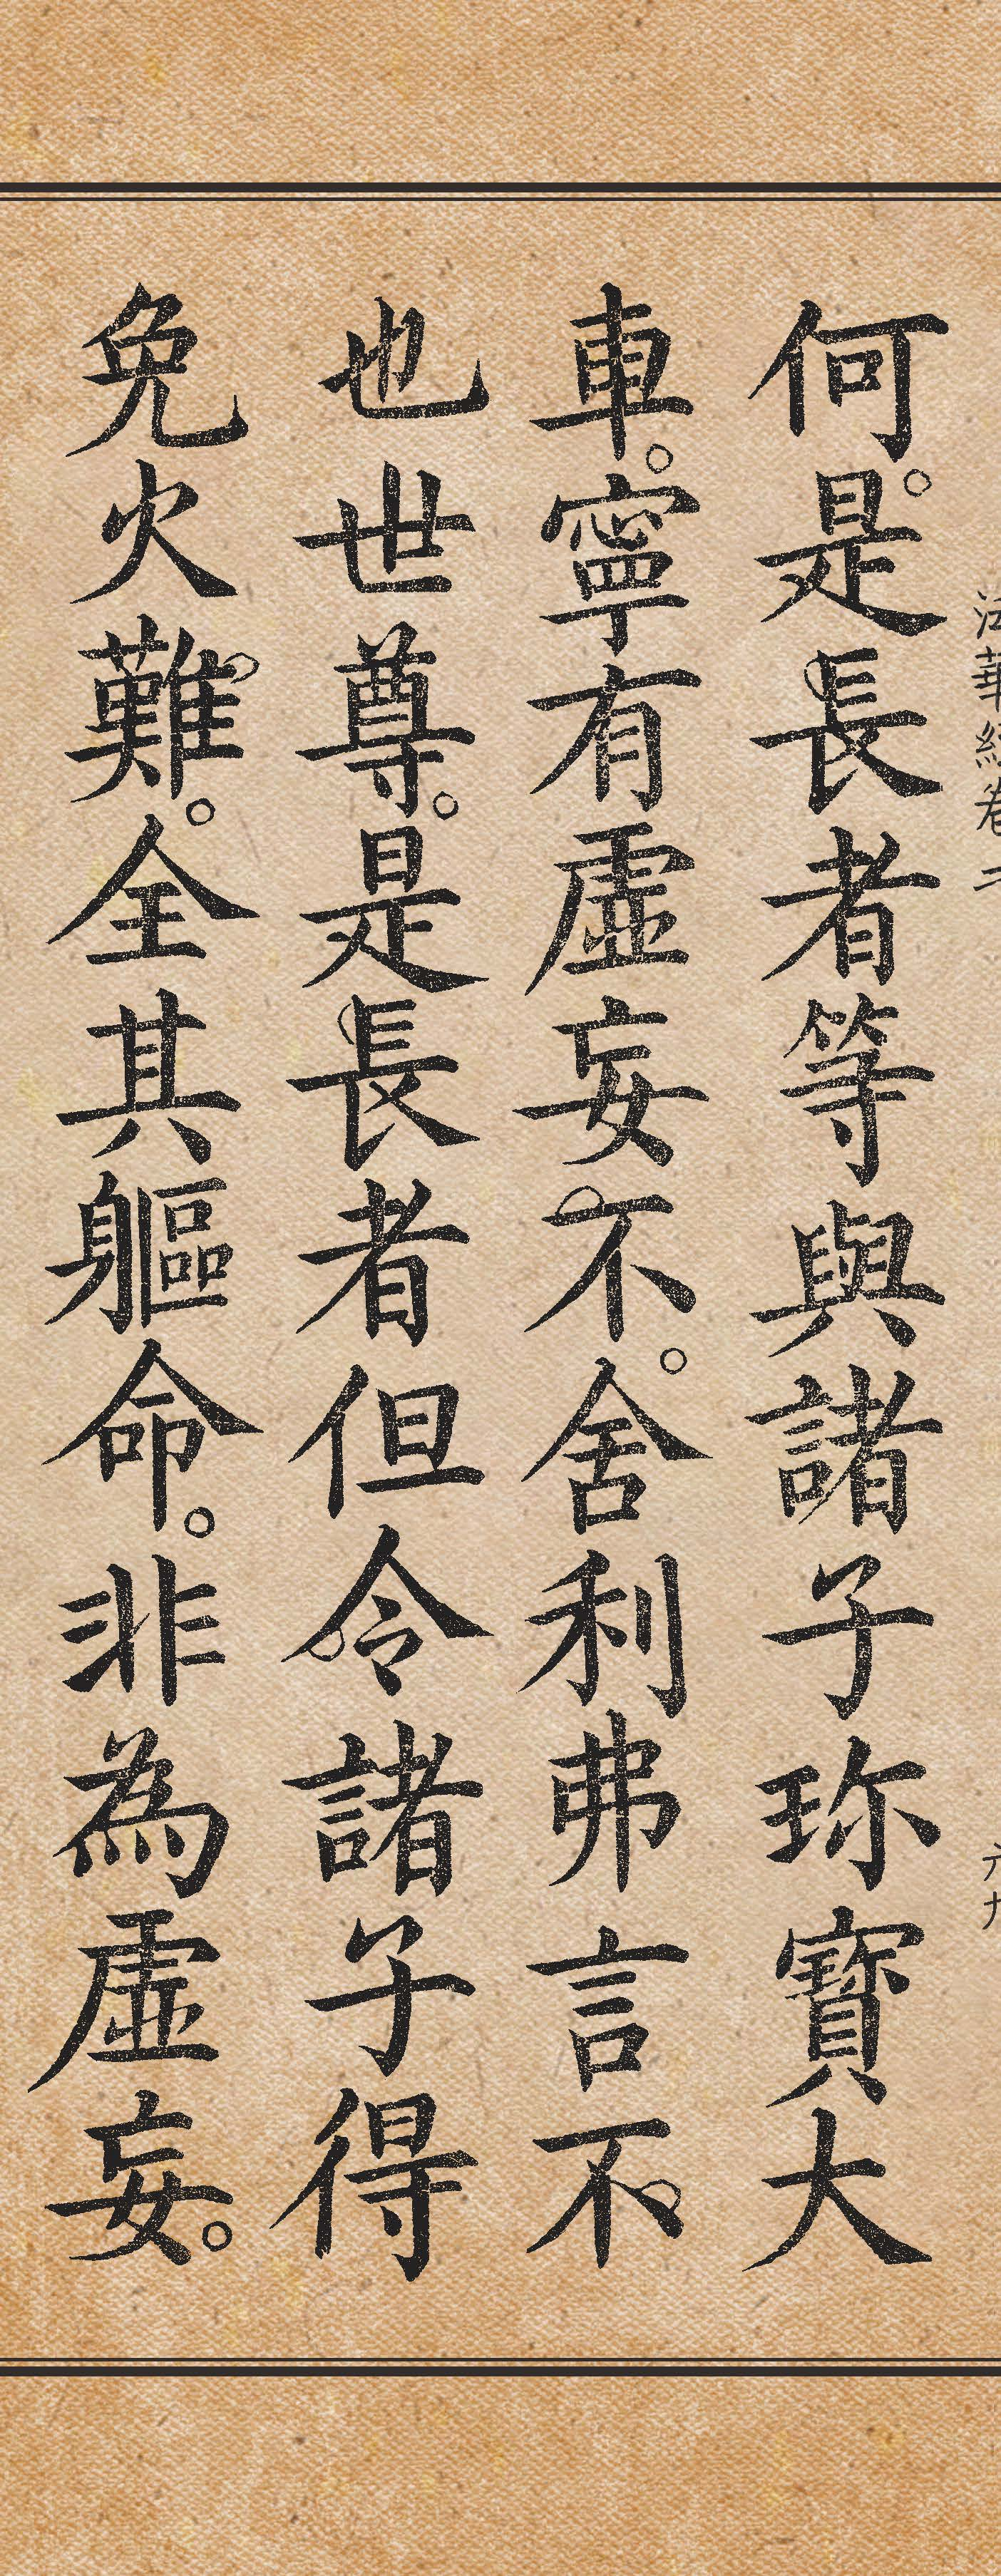 法華經卷二
六九
何。是長者等與諸子珍寶大
車。寧有虛妄不。舍利弗言不
也世尊。是長者但令諸子得
免火難。全其軀命。非為虛妄。